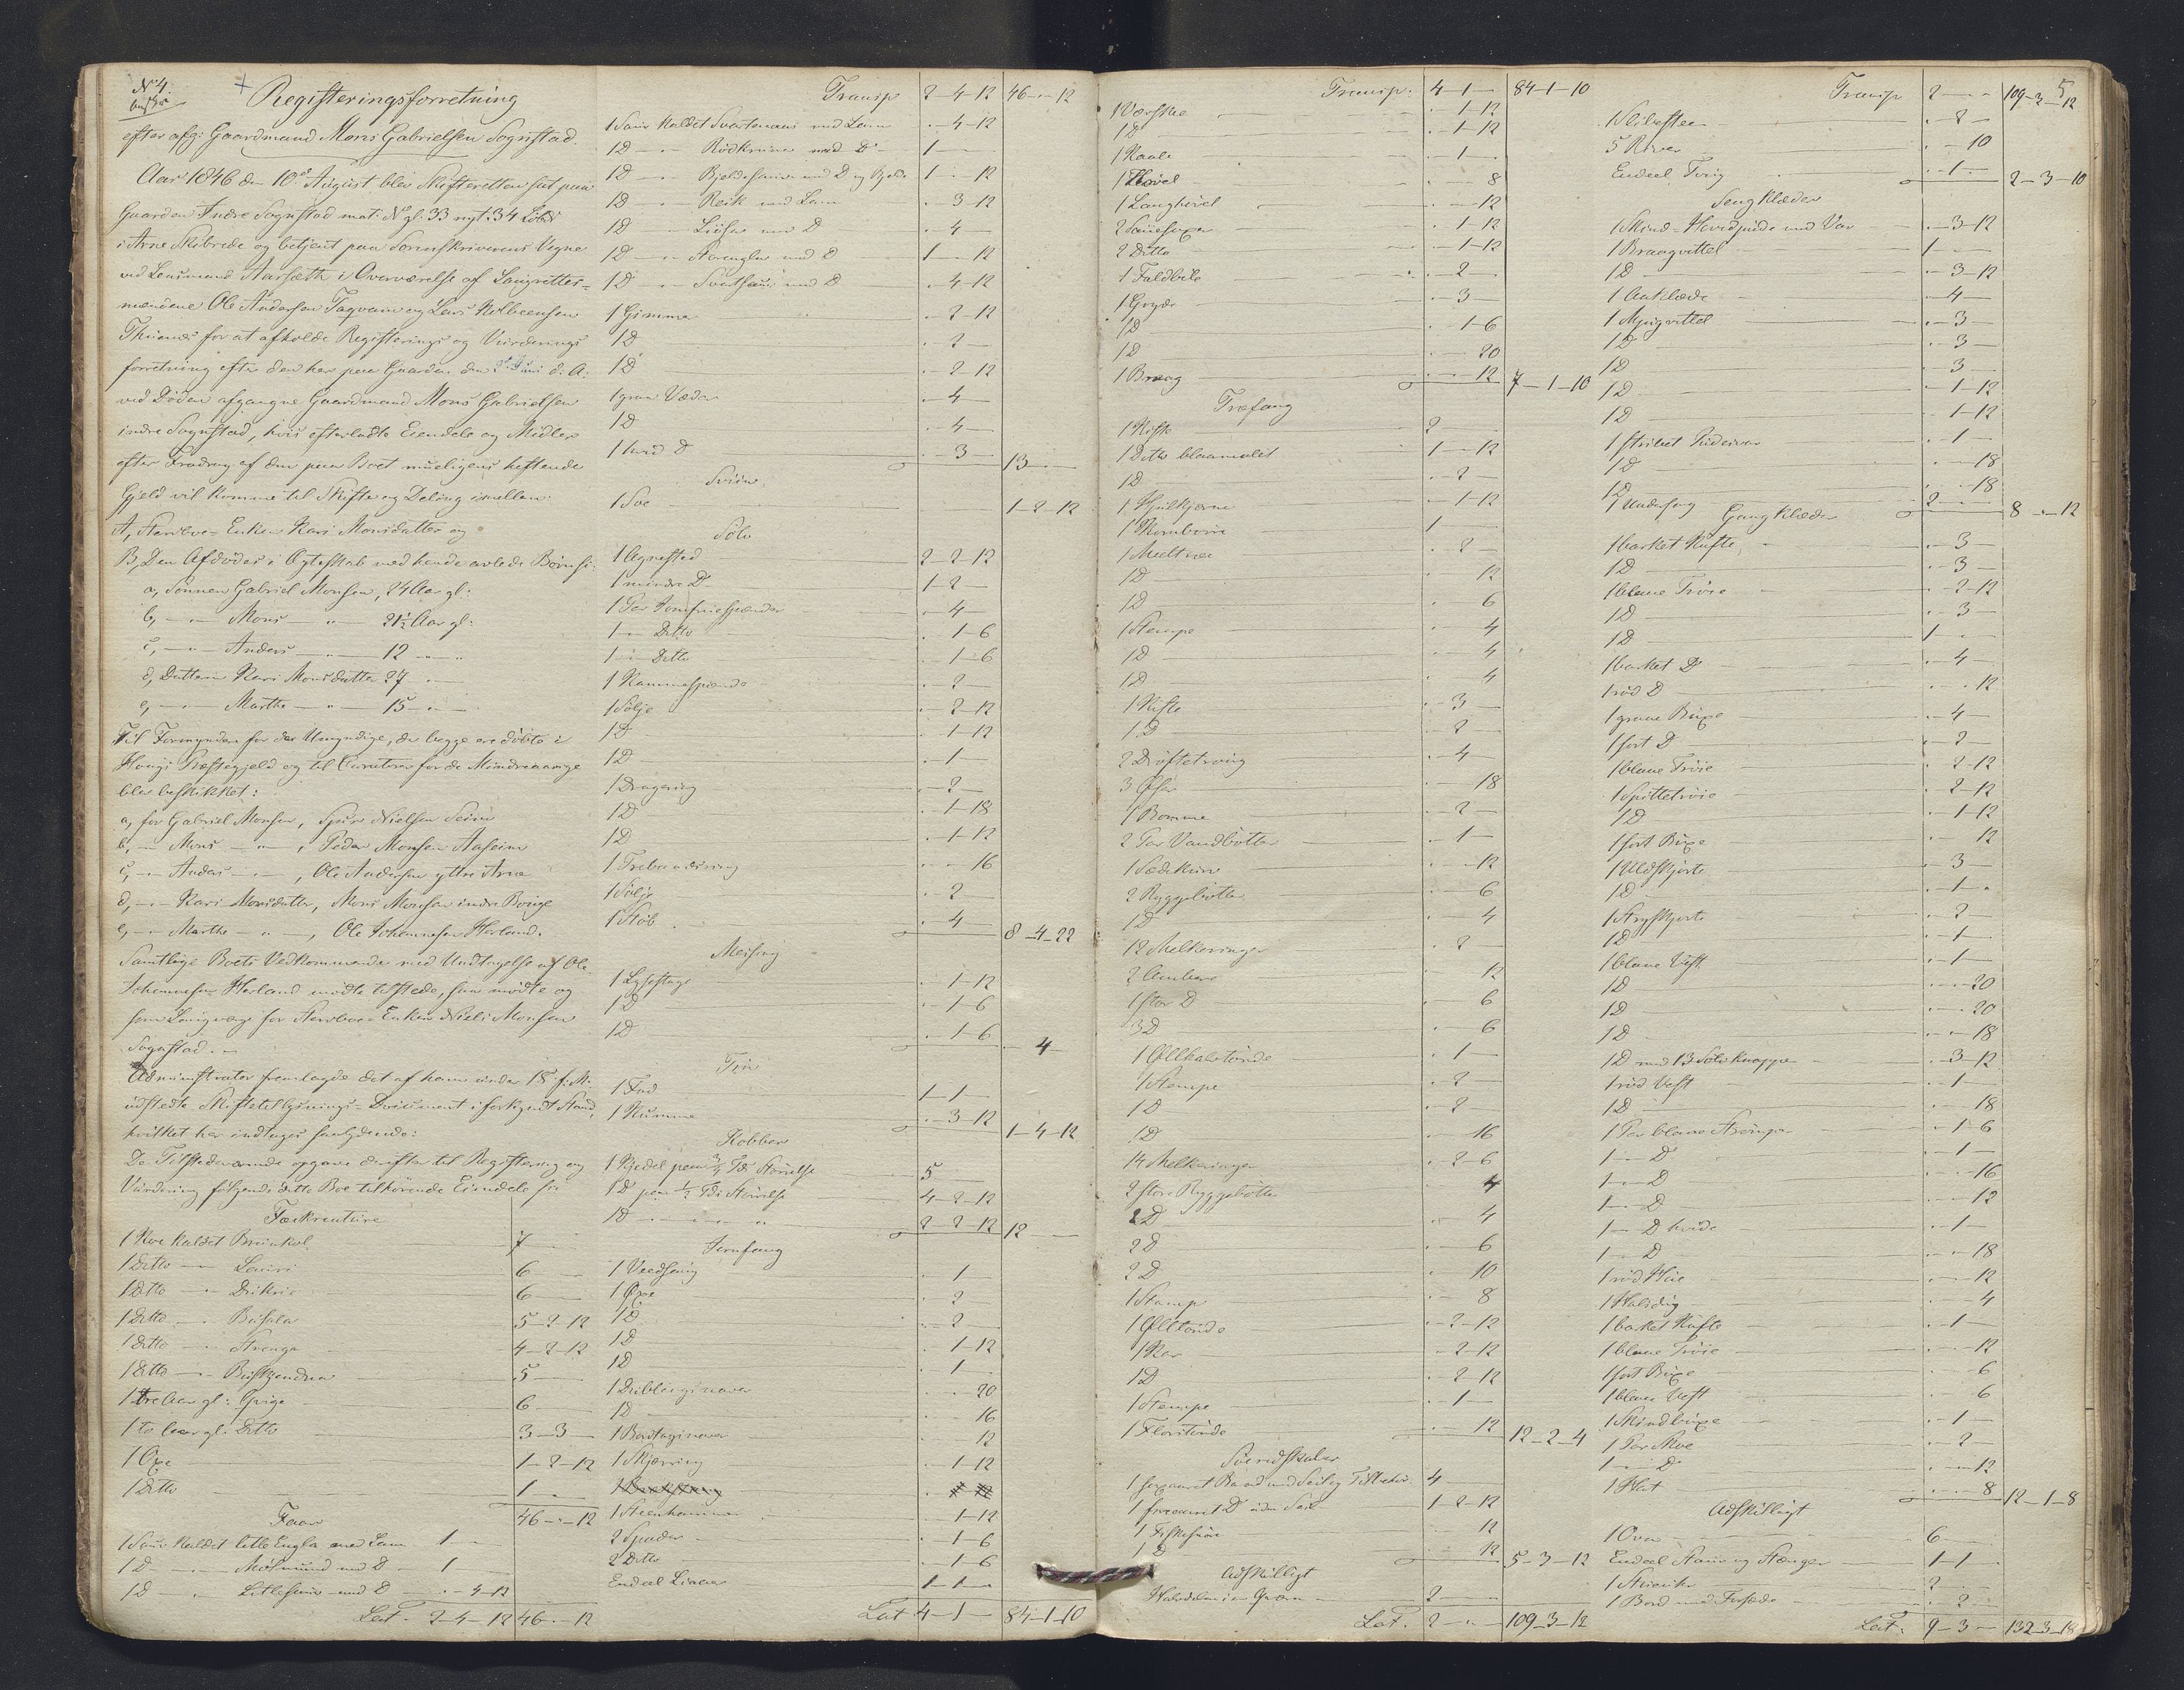 No 4.
Registeringsforretning
efter afg: Gaardmand Mons Gabrielsen Sognstad.
Aar 1846 den 10de August blev Skifteretten sat paa
Gaarden Indre Sognstad mat: No gl: 33 nyt: 34
i Arne Skibrede og betjent paa Sorenskriverens Vegne
ved Lensmand Aarsæth i Overværelse af Laugrettes=
mændene Ole Andersen Taqvam og Lars Kolbeensen
for at afholde Registerings og Vurderings
forretning efter den her paa Gaarden den 2de Juni d: A:
ved Døden afgangne Gaardmand Mons Gabrielsen
indre Sognstad, hvis efterladte Eiendele og Midler
efter Fradrag af den paa Boet mueligens heftende
Gjeld vil komme til Skifte og Deling imellem:
A, Stervboe-Enken Kari Monsdatter og
B, Den Afdødes i Ægteskab med hende avlede Børn
a, Sønnen Gabriel Monsen, 24 Aar gl:
b, — Mons — " — 21½ Aar gl:
c, — Anders — " — 12 —
d, Datteren Kari Monsdatter 27 —
e, — Marthe — " — 15 —
Til Formyndere for de Umyndige, der begge ere døbte i
Hougs Præstegjeld og til Curatorer for de Mindreaarige
blev beskikket:
a, for Gabriel Monsen, Nielsen Seim
b, — Mons — " —, Peder Monsen Aaseim
c, — Anders —, Ole Andersen yttre Arne
d, — Kari Monsdatter, Mons Monsen indre Borge
e, — Marthe — " —, Ole Johannesen Herland.
Samtlige Boets Vedkommende med Undtagelse af Ole
Johannesen Herland mødte tilstede, som mødte og
som Laugværge for Stervboe-Enken Niels Monsen
Sognstad. —
Administrator fremlagde det af ham under 18 f: M:
udstedte Skiftetillysnings-Document i forkyndt Stand,
hvilket her indtages saalydende:
De Tilstedeværende opgave derefter til Registering og
Vurdering følgende dette Boe tilhørende Eiendele
Fækreature
1 Koe kaldet Brunkol 7 —
1 Ditto — 6 —
1 Ditto — 6 —
1 Ditto — 5-2-12
1 Ditto — Strenge 4-2-12
1 Ditto — 5 —
1 tre Aar gl: Qvige 6 —
1 to Aar gl: Ditto 3-3 —
1 Oxe 1-2-12
1 Ditto 1 —
46 - " - 12
Faar
1 Sau kaldet litle Engla med Lam 1 —
1 D — med D 1 —
1 D — Litlesau med D " -4-12
Lat. 2-4-12 46 - " - 12
Transp 2-4-12 46 - " - 12
1 Sau kaldet med Lam " -4-12
1 D — Rødkruna med D 1 —
1 D — med D og Bjelde 1 - " - 12
1 D — med Lam " -3-12
1 D — med D " -4 —
1 D — med D 1 - " - 12
1 D — Svartsau med D " -4-12
1 Gimmer " -2-12
1 D " -2 —
1 D " -2-12
1 graa Væder " -4 —
1 D " -4 —
1 hvid D " -3 — 13 —
Sviin
1 Soe 1-2-12
Sølv
1 Agnestad 2-2-12
1 mindre D 1-2 —
1 Par Jomfruespænder " -4 —
1 — Ditto " -1-6
1 — Ditto " -1-6
1 " -2 —
1 Sølje " -2-12
1 D " -1-12
1 D " -1 —
1 Dragering " -2 —
1 D " -1-18
1 D " -1-12
1 " - " -16
1 Sølje " -2 —
1 Støb " -4 — 8-4-22
Messing
1 Lysestage " -1-12
1 D " -1-6
1 D " -1-6 " -4 —
Tin
1 Fad 1-1 —
1 Kumme " -3-12 1-4-12
Kobber
1 Kjedel paa ¾ Tde Størrelse 5 —
1 D paa ½ Tde Størrelse 4-2-12
1 D — 2-2-12 12 —
Jernfang
1 " -1 —
1 Øxe " -2 —
1 D " -2 —
1 D " -1-12
1 D " -1 —
1 " - " -20
1 D " - " -16
1 " - " -12
1 Skjæring " -1-12
1 Steenhammer " -1-12
2 Spader " -1-6
2 Ditto " -1-6
Endeel Liaaer 1-1 —
Lat 4-1 — 84-1-10
Transp. 4-1 — 84-1-10
1 " -1-12
1 D " -1-12
1 Naale " -1 —
1 Høvel " - " -8
1 Langhøvel " - " -12
2 Sauesaxer " -1-12
2 Ditto " -1-12
1 Faldbile " -2 —
1 Gryde " -3 —
1 D " -1-6
1 D " - " -20
1 " - " -12 7-1-10
Træfang
1 Kiste 2 —
1 Ditto blaamalet 1 - " - 12
1 D " -2 —
1 Hjulkjærne " -1-12
1 Kornbøre 1 —
1 " -2 —
1 D " - " -12
1 D " - " -6
1 Stampe " - " -4
1 D " - " -4
1 D " - " -4
1 Kiste " -3 —
1 D " -2 —
2 Drøftetroug " -4 —
3 Øser " - " -18
1 Romme " -2 —
2 Par Vandbøtter " -1 —
1 Sædekurv " - " -12
2 Byggebøtter " - " -6
1 D " - " -4
12 Melkeringer " -2 —
2 Ambar " - " -12
1 stor D " - " -6
3 D " - " -6
1 " -1 —
1 Stampe " -2 —
1 D " -2 —
1 D " - " -16
14 Melkeringer " -2-6
2 store Byggebøtter " - " -4
2 D " - " -4
2 D " - " -6
2 D " - " -10
1 Stamp " - " -8
1 Ølltønde " -2-12
1 Kar " -2-12
1 D " -2-12
1 Stampe " -1 —
1 " - " -12 12-2-4
Søeredskaber
1 sexaaret Baad med Seil og Tilbehør 4 —
1 fireaaret D uden Seil 1-2-12
1 Fiskesnøre " - " -12
1 D " - " -12 5-3-12
Adskilligt
2 —
Lat. 2 - " - " 109-3-12
5
Transp 2 - " - " 109-3-12
1 Slibesteen " -2 —
5 River " - " -10
Endeel " -1 — 2-3-10
Sengklæder
1 Skind-Hovedpude med Var " -3-12
1 Braagvittel 1 —
1 D " -3-12
1 Aaklæde " -4 —
1 " -3 —
1 D " -3 —
1 D " -3 —
1 D " -1-12
1 D " -1-12
1 stribet Pudevar " -1 —
1 D " - " -18
1 D " - " -18
1 Underseng 2 — 8 - " - 12
Gangklæder
1 barket Kufte " -3 —
1 D " -3 —
1 blaae Trøie " -2-12
1 D " -3 —
1 D 1 —
1 barket D " -4 —
1 rød D " - " -12
1 graae Buxe " -4 —
1 sort D " -2 —
1 blaae Trøie " -2-12
1 Spittetrøie " -2-12
1 D " -1-12
1 sort Buxe " - " -12
1 Uldskjorte " -3 —
1 D " -1 —
1 Strieskjorte " -2 —
1 D " -1 —
1 blaae Vest " -1 —
1 D " - " -20
1 D " - " -20
1 D " - " -18
1 D med 13 Sølvknapper " -3-12
1 rød Vest " -1 —
1 D " - " -18
1 Par blaae Strømper " -1-6
1 — D " -1 —
1 — D " - " -16
1 — D " - " -12
1 — D hvide " -1 —
1 — D " - " -18
1 rød Hue " - " -12
1 Halsdug " - " -4
1 barket Kufte " -1 —
1 blaae Trøie " - " -12
1 sort Buxe " - " -6
1 blaae Vest " - " -6
1 Skindbuxe " -1 —
1 Par Skoe " -2 —
1 — D " - " -12
1 Hat " - " -8 12-1-8
Adskilligt
1 6 —
Endeel Staur og Stænger 1-1 —
1 2 —
1 Bord med Forsæde " -2 —
Lat. 9-3 — 132-3-18